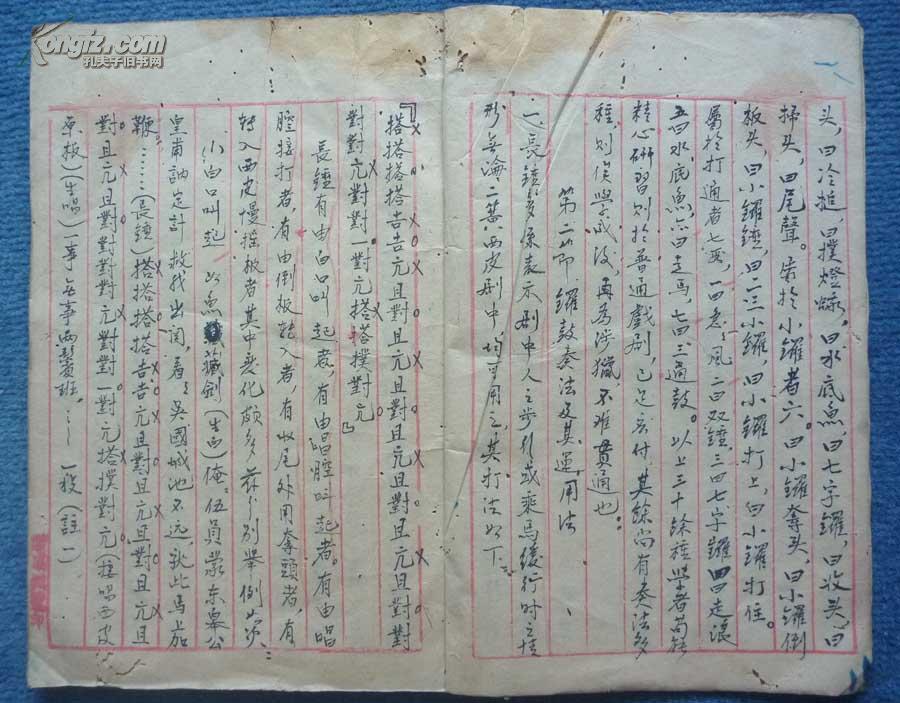 头,曰冷搥,曰撲燈蛾,曰水底魚,曰七字鑼,曰收头,曰
掃头,曰尾聲。屬於小鑼者六。曰小鑼奪头,曰小鑼倒
板头,曰小鑼錘,曰二三小鑼,曰小鑼打上,曰小鑼打住。
屬於打通者七。一曰急急風二曰双錘,三曰七字鑼四曰走浪
五曰水底魚,六曰走馬,七曰三通鼓。以上三十餘種學者苟能
精心研習则於普通戲剧,已足应付其餘尚有奏法多
種,则俟學成後,再為涉獵,不难貫通也。
第二節 鑼鼓奏法及其運用法
一、長錘多係表示剧中人之步行或乘馬緩行时之情
形無論二簧西皮剧中,均可用之,其打法如下:
『搭搭搭搭告告亢且對對且亢且對且亢且對對
對對亢對對一對亢搭搭撲對亢』
長錘有由白口叫起者,有由唱腔叫起者。有由唱
腔接打者,有由倒板转入者,有收尾外用奪頭者,有
转入西皮慢搖板者其中变化頗多茲分别舉例於
小白口叫起 如魚藏劍(生白)俺,伍員蒙东皋公
皇甫訥定計 救我出関,看:吳國城池不远,就此馬上加
鞭……(長錘)搭搭搭搭告告亢且對且亢且對且亢且
對且亢且對對對對亢對對一對亢搭撲對亢(接唱西皮
原板)(生唱)一事無事两鬓班…… 一段(註一)
孔夫子旧书网